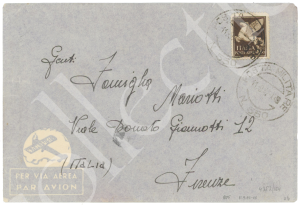 Gent.
Famiglia
Mariotti
Viale Donato Giannotti 12
(Italia)
Firenze
PER VIA AEREA
PAR AVION
ITALIA